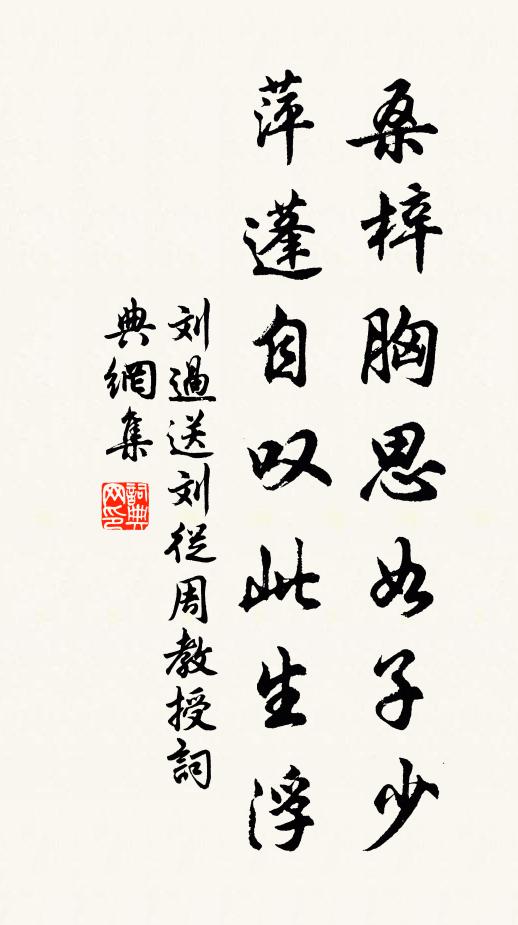 桑梓胸思如子少
萍蓬自叹此生浮
刘過送刘從周教授詞
典網集
詞典网印